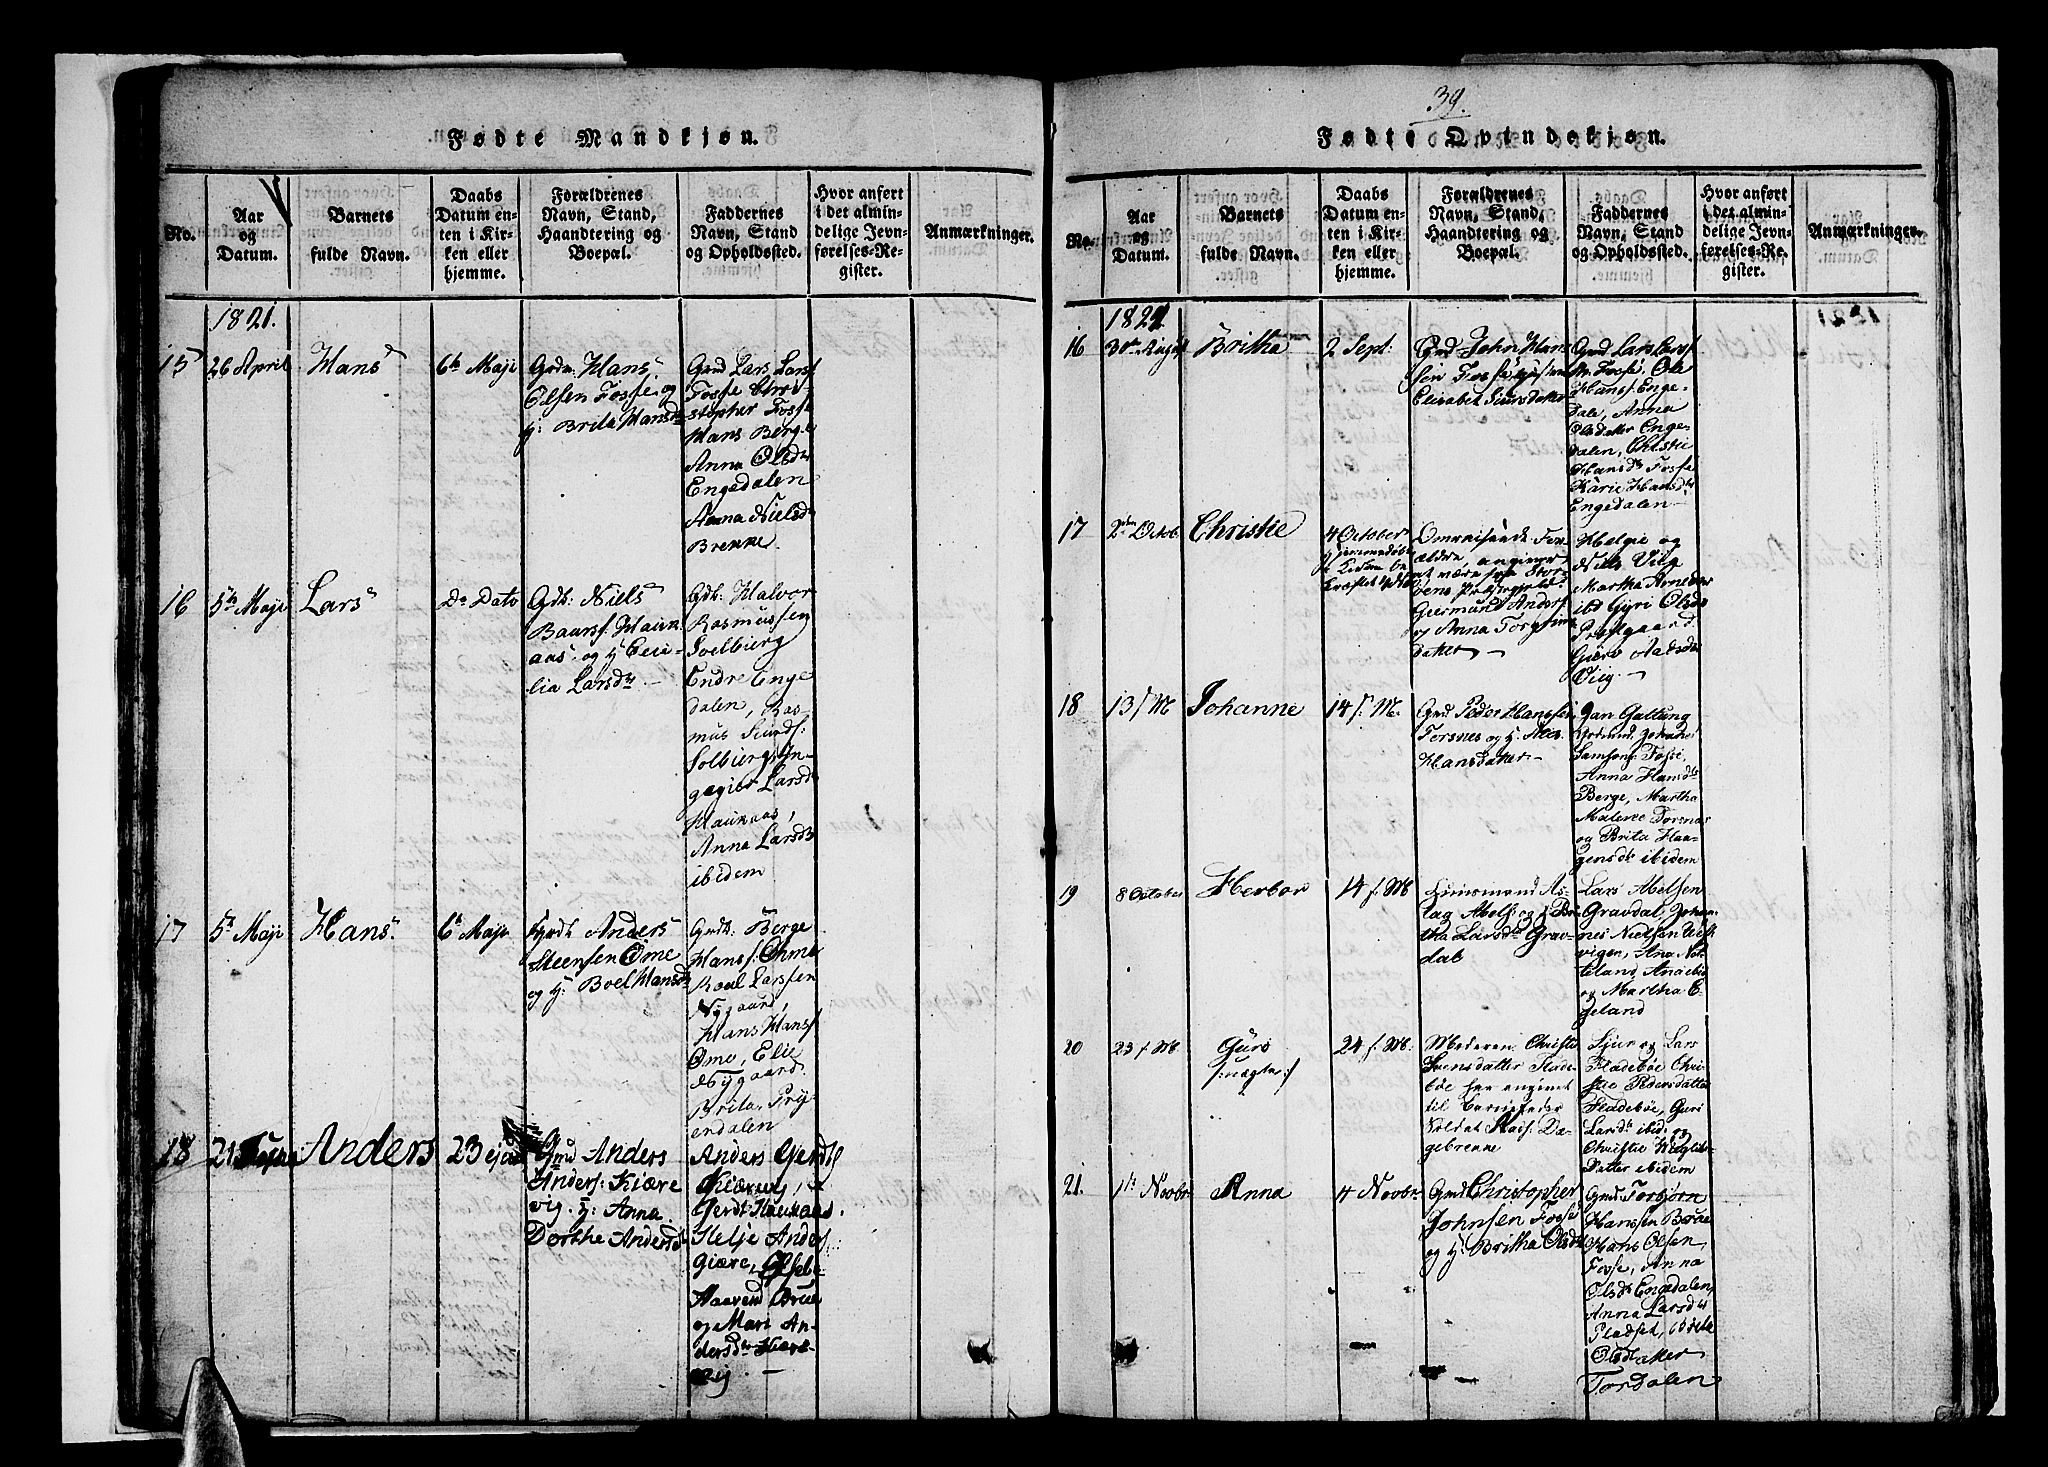 Fødte Mandkjøn.
No.
Aar
og
Datum.
Barnets
fulde Navn.
Daabs
Datum en-
ten i Kir-
ken eller
hjemme.
Forældrenes
Navn, Stand,
Haandtering og
Boepæl.
Faddernes
Navn, Stand
og Opholdssted.
Hvor anført
i det almin-
delige Jevn-
førelses-Re-
gister.
Anmærkninger.
1821.
15
26 April
Hans
6te Maji
Grdm. Hans
Olsen Fosse og
H: Brita Hansd
Gmd Lars Lars
Fosse Chri
stopher Fosse
Hans Berge
Anna Olsdr
Engedalen
Anna Nielsdr
Brekke.
16
5te Maji
Lars
Do Dato
Gdb: Niels
Baars: Hauk
aas og H Ceci-
lia Larsdtr
Gdb: Halvor
Rasmussen
Soelbierg
Endre Enge
dalen, Ras
mus Siurds:
Solbierg In-
gegier Larsd
Haukaas,
Anna Larsdtr
ibidem
17
5te Maji
Hans
6te Maji
Anders
Steensen Ome
og H: Boel Hansd
Gmdb: Berge
Hans: Ohme
Roal Larssen
Nygaard,
Hans Hans
Ome, Elie
Nygaard
Brita
18
21 Juni
Anders
23 ejus
Gmd Anders
Anders: Kiære
vig. H: Anna
Dorthe Andersd
Anders Gerdts
Kiærvig,
Gerdt Haukaas
Helje Anders
giære,
og Mari An-
dersdtr Kiære
vig.
39.
Fødte Qvindekjøn.
No.
Aar
og
Datum.
Barnets
fulde Navn.
Daabs
Datum en-
ten i Kir-
ken eller
hjemme.
Forældrenes
Navn, Stand,
Haandtering og
Boepæl.
Faddernes
Navn, Stand
og Opholdssted.
Hvor anført
i det almin-
delige Jevn-
førelses-Re-
gister.
Anmærkninger.
1821
16
30te August
Britha
2 Sept:
Gmd John Han
sen Fosse
Elisabet Siursdatter
Gmd Lars Lars
Fosse, Ole
Hans: Enge-
dale, Anna
Olsdatter Enge
dalen, Christie
Hansdtr Fosse
Karie Hansdtr
Engedalen
17
2den Octob.
Christie
4 October
Omreisende For
ældre angiver
at være fra Stor
øens Præstegield
Giermund Anders
og Anna
datter
Helgie og
Nils Viig
Martha Arnedtr
ibd Gyri Olsdr
Prestgaard
Guro
Viig.
18
13 / M
Johanne
14 /. M.
Gmd Peder Hanssen
Torsnes og H.
Hansdatter
Jan Guttung
Johannes
Samsons: Fosse,
Anna Hansdtr
Berge, Martha
Malene Torsnæs
og Brita Haa-
gensdtr ibidem
19
8 October
Herbor
14 /. M
As-
lag Abels: og H Bri
tha Larsdtr Grav-
dal
Lars Abelsen
Gravdal, Johan-
nes Nielsen
vigen, Ana
og Martha E-
geland
20
23 /. M.
Guro
/:uægte:/
24 /. M.
Moderen Christie
Svensdatter Flade-
bøe har angivet
til Barnefader
Soldat
Sjur og Lars
Fladebøe Chri-
stie Pedersdatter
Fladebøe, Guri
Larsdtr ibid: og
Christie
Datter ibidem
21.
1te Novbr
Anna
4 Novbr.
Gmd Christopher
Johnsen Fosse
og H: Britha Olsdtr
Gmd Torbjørn
Hanssen Børve
Hans Olsen
Fosse, Anna
Olsdr Engedalen,
Anna Larsdtr
Fladset,
Olsdatter
Tordalen